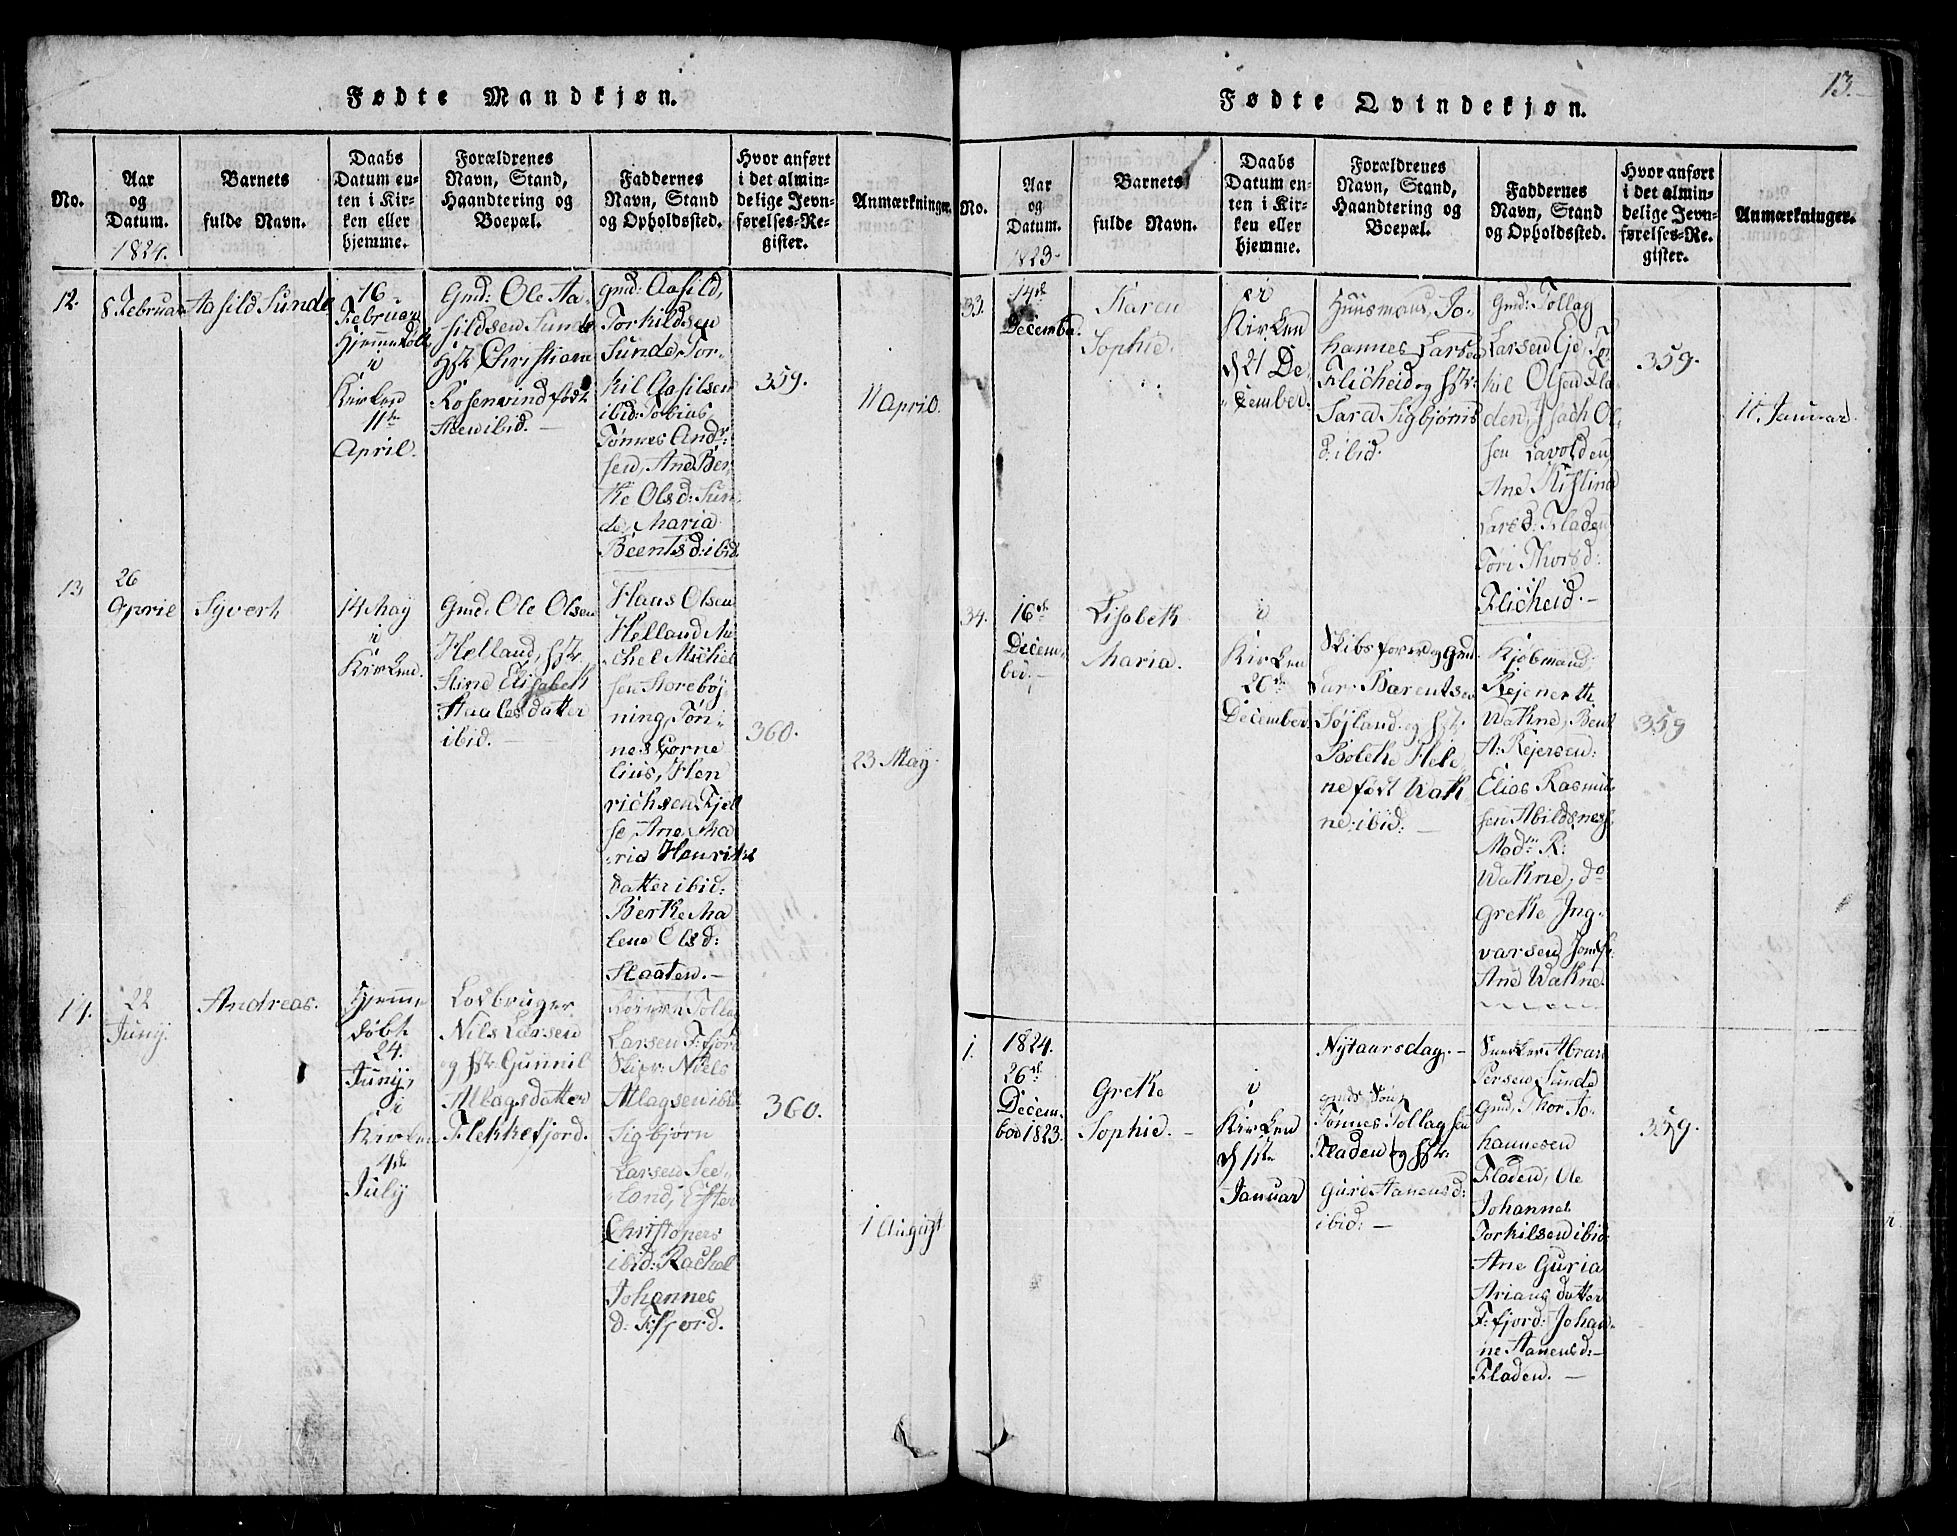 Fødte Mandkjøn.
No.
Aar
og
Datum.
1824.
Barnets
fulde Navn.
Daabs
Datum en-
ten i Kir-
ken eller
hjemme.
Forældrenes
Navn, Stand,
Haandtering og
Boepæl.
Faddernes
Navn, Stand
og Opholdssted.
Hvor anført
i det almin-
delige Jevn-
førelses-Re-
gister.
Anmærkninger.
12.
8 Februar
Aasild Sunde
16
Februar
Hjemmedøbt
i
Kirken
11te
April.
Gmd: Ole Aa-
sildsen Sunde
Hstr Christiane
Rosenvind født
Steen ibid. —
Gmd: Aasild,
Torkildsen
Sunde, Tor-
kil Aasilsen
ibid: Tobias,
Tønnes Andr:
sen, Ane Ber-
the Olsd: Sun-
de, Maria
Beentsd: ibid
359.
11 April.
13
26
April
Syvert
14 May
i
Kirken.
Gmd. Ole Olsen
Helland, hstr
Stine Elisabeth
Staalesdatter
ibid. —
Hans Olsen
Helland, Mi-
chel Michel
sen Storebøj-
ning, Tøn-
nes Corne
lius, Hen
richsen Fjell
se, Ane Ma
ria Henriks
datter ibid:
Berthe Ma
lene Olsd:
Staaten. —
360.
23 May.
14.
22
Juny.
Andreas.
Hjemme
døbt
24.
Juny,
i
Kirken
4de
July
Losbruger
Nils Larsen
og hstr Gunnil
Atlagsdatter
Flekkefjord.
Tollag
Larsen F:fjord
Skipr: Niels
Atlagsen ibid
Sigbjørn
Larsen See-
land, Ester
Christopers
ibid: Rachel
Johannes
d: F:fjord.
360.
1 August
Fødte Qvindekjøn.
13.
No.
Aar
og
Datum.
1823.
Barnets
fulde Navn.
Daabs
Datum en-
ten i Kir-
ken eller
hjemme.
Forældrenes
Navn, Stand,
Haandtering og
Boepæl.
Faddernes
Navn, Stand
og Opholdssted.
Hvor anført
i det almin-
delige Jevn-
førelses-Re-
gister.
Anmærkninger.
33.
14de
December.
Karen
Sophie.
i
Kirken
d 21 De-
cember.
Huusmand, Jo-
hannes Larsen
Flicheid og hstr:
Sara Sigbjørns
d: ibid.
Gmd: Tollag
Larsen Eje, Tor
kil Olsen Fla-
den, Isach Ol-
sen Lavolden,
Ane Kistina
Larsd: Fladen
Tøri Thorsd:
Flicheid. —
359.
11. Januar.
34.
16de
Decem-
ber. —
Lisabeth
Maria.
i
Kirken
26de
December
Skibsfører og Gmd.
Lar: Barentsen
Søjland og hstr.
Bolethe Hele-
ne født Wath
ne, ibid: —
Kjøbmand
Rejnerth
Wathne, Bent
A: Rejersen:
Elias Rasmus
sen Abildsness.
Madm: R:
Wathne, do
Grethe Ing-
varsen, Jomfr:
Ane Wathne
359
1.
1824.
26de
Decem-
ber 1823.
Grethe
Sophie. —
i
Kirken
d 1ste
Januar
Nytaarsdag. —
gmds Søn
Tønnes Tollagsen
Fladen og hstr:
Guri Aanensd:
ibid: —
Snecker Abran
Persen Sunde
Gmd, Thor Jo-
hannesen
Fladen, Ue
Johannes
Torkilsen ibid:
Ane Guria
Arians datter
F:fjord: Johan-
ne Aanensd: —
Fladen. —
359.